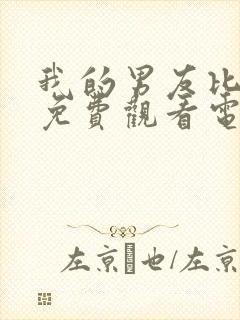 我的男友比
免費觀看電
左京 也/左京